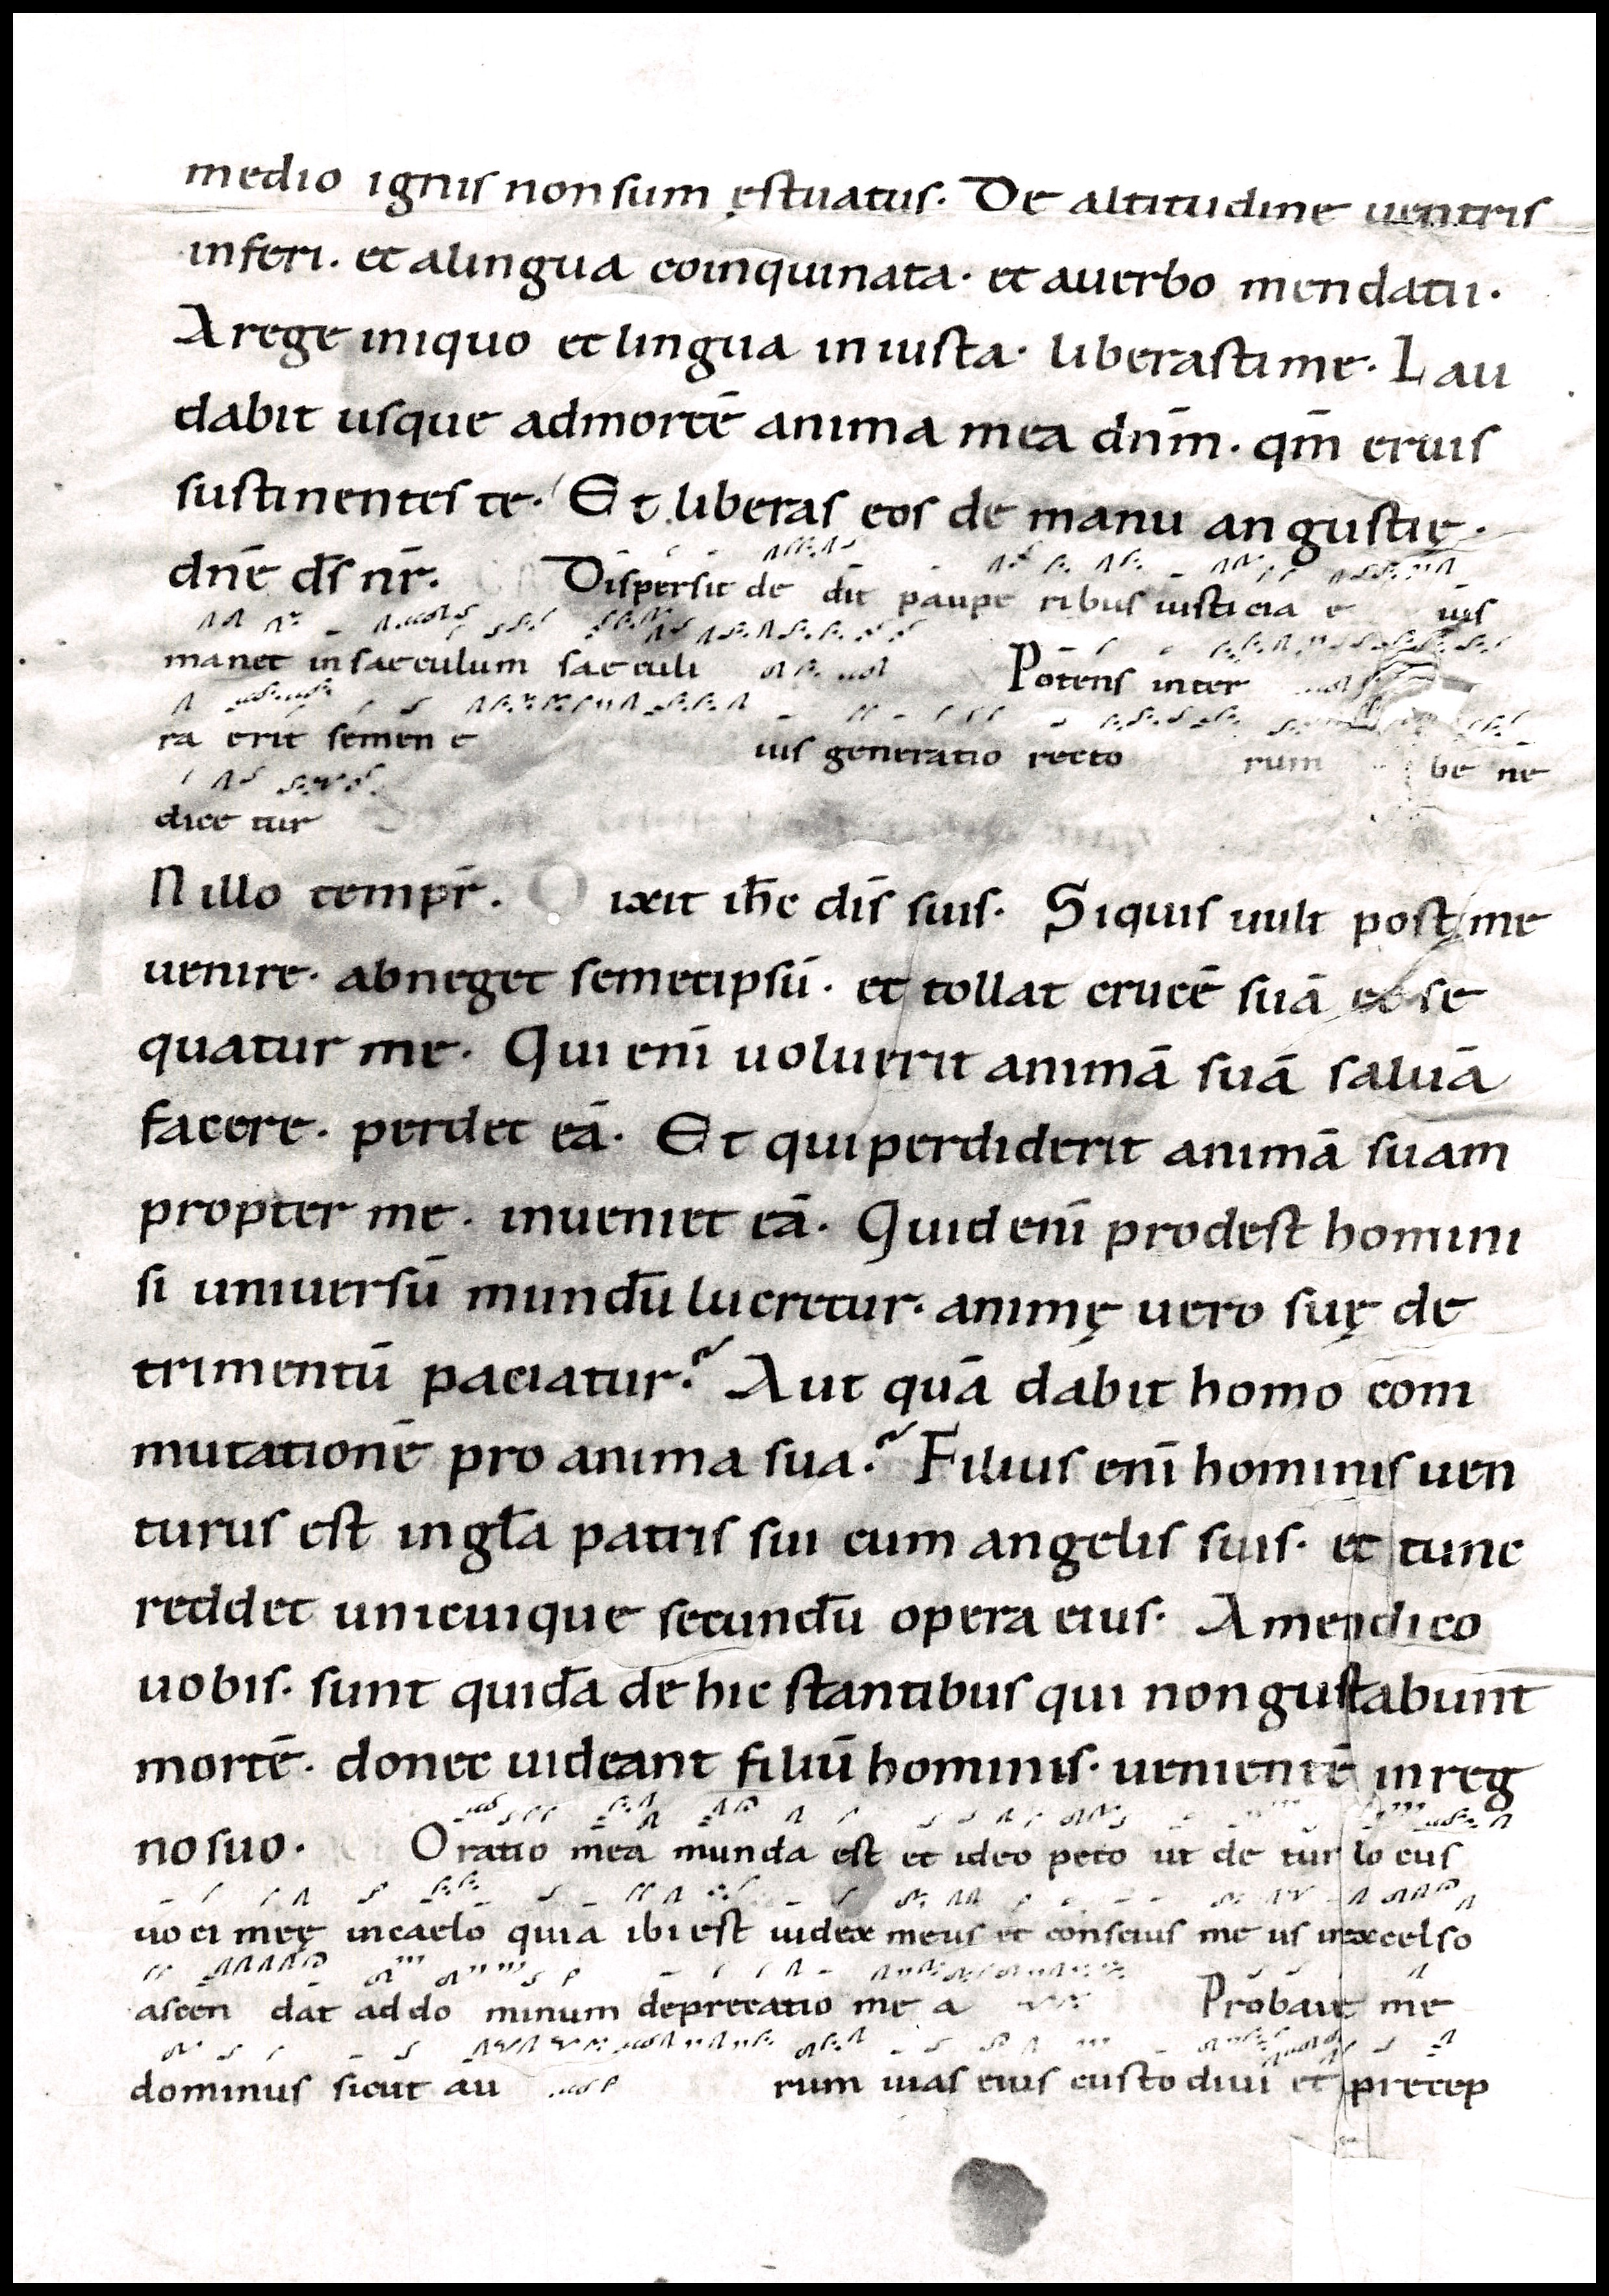 medio ignis non sum ęstuatus. De altitudine uentris
inferi. et alingua coinquinata. et auerbo mendatii.
A rege iniquo et lingua iniusta. liberasti me. Lau
dabit usque admortē anima mea dn̄m. qm̄ eruis
sustinentes te. Et liberas eos de manu angustię.
dn̄e ds̄ nr̄. Dispersit de dit paupe ribus iusticia e ius
manet in saeculum saeculi Potens inter
ra erit semen e ius generatio recto rum be ne
dice tur
N illo tempr̄. ixit ih̄c dis̄ suis. Siquis uult post me
uenire. abneget semetipsū. et tollat crucē suā et se
quatur me. Qui enī uoluerit animā suā saluā
facere. perdet eā. Et qui perdiderit animā suam
propter me. inueniet eā. Quid enī prodest homini
si uniuersū mundū lucretur. animę uero suę de
trimentū paciatur? Aut quā dabit homo com
mutationē pro anima sua? Filius enī hominis uen
turus est in gl̄a patris sui cum angelis suis. et tunc
reddet unicuique secundū opera eius. Amen dico
uobis. sunt quidā de hic stantibus qui non gustabunt
mortē. donec uideant filiū hominis. uenientē in reg
no suo. Oratio mea munda est et ideo peto ut de tur lo cus
uo ci meę incaelo quia ibi est iudex meus et conscius me us inexcelso
ascen dat ad do minum deprecatio me a Probauit me
dominus sicut au rum uias eius custo diui et precep